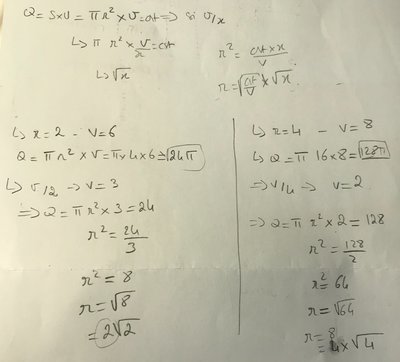 Q = S×V = π r² × V = cst ⇒ si V/x
↳ π r² × V/x = cst
↳ √x
r² = cst × x / V
r = √(cst/V) × √x
↳ r = 2 - V = 6
Q = π r² × V = π × 4 × 6 = 24π
↳ V/2 → V = 3
⇒ Q = π r² × 3 = 24
r² = 24/3
r² = 8
r = √8
= 2√2
↳ r = 4 - V = 8
↳ Q = π 16 × 8 = 128π
⇒ V/4 → V = 2
⇒ Q = π r² × 2 = 128
r² = 128/2
r² = 64
r = √64
r = 8
= 4 × √4